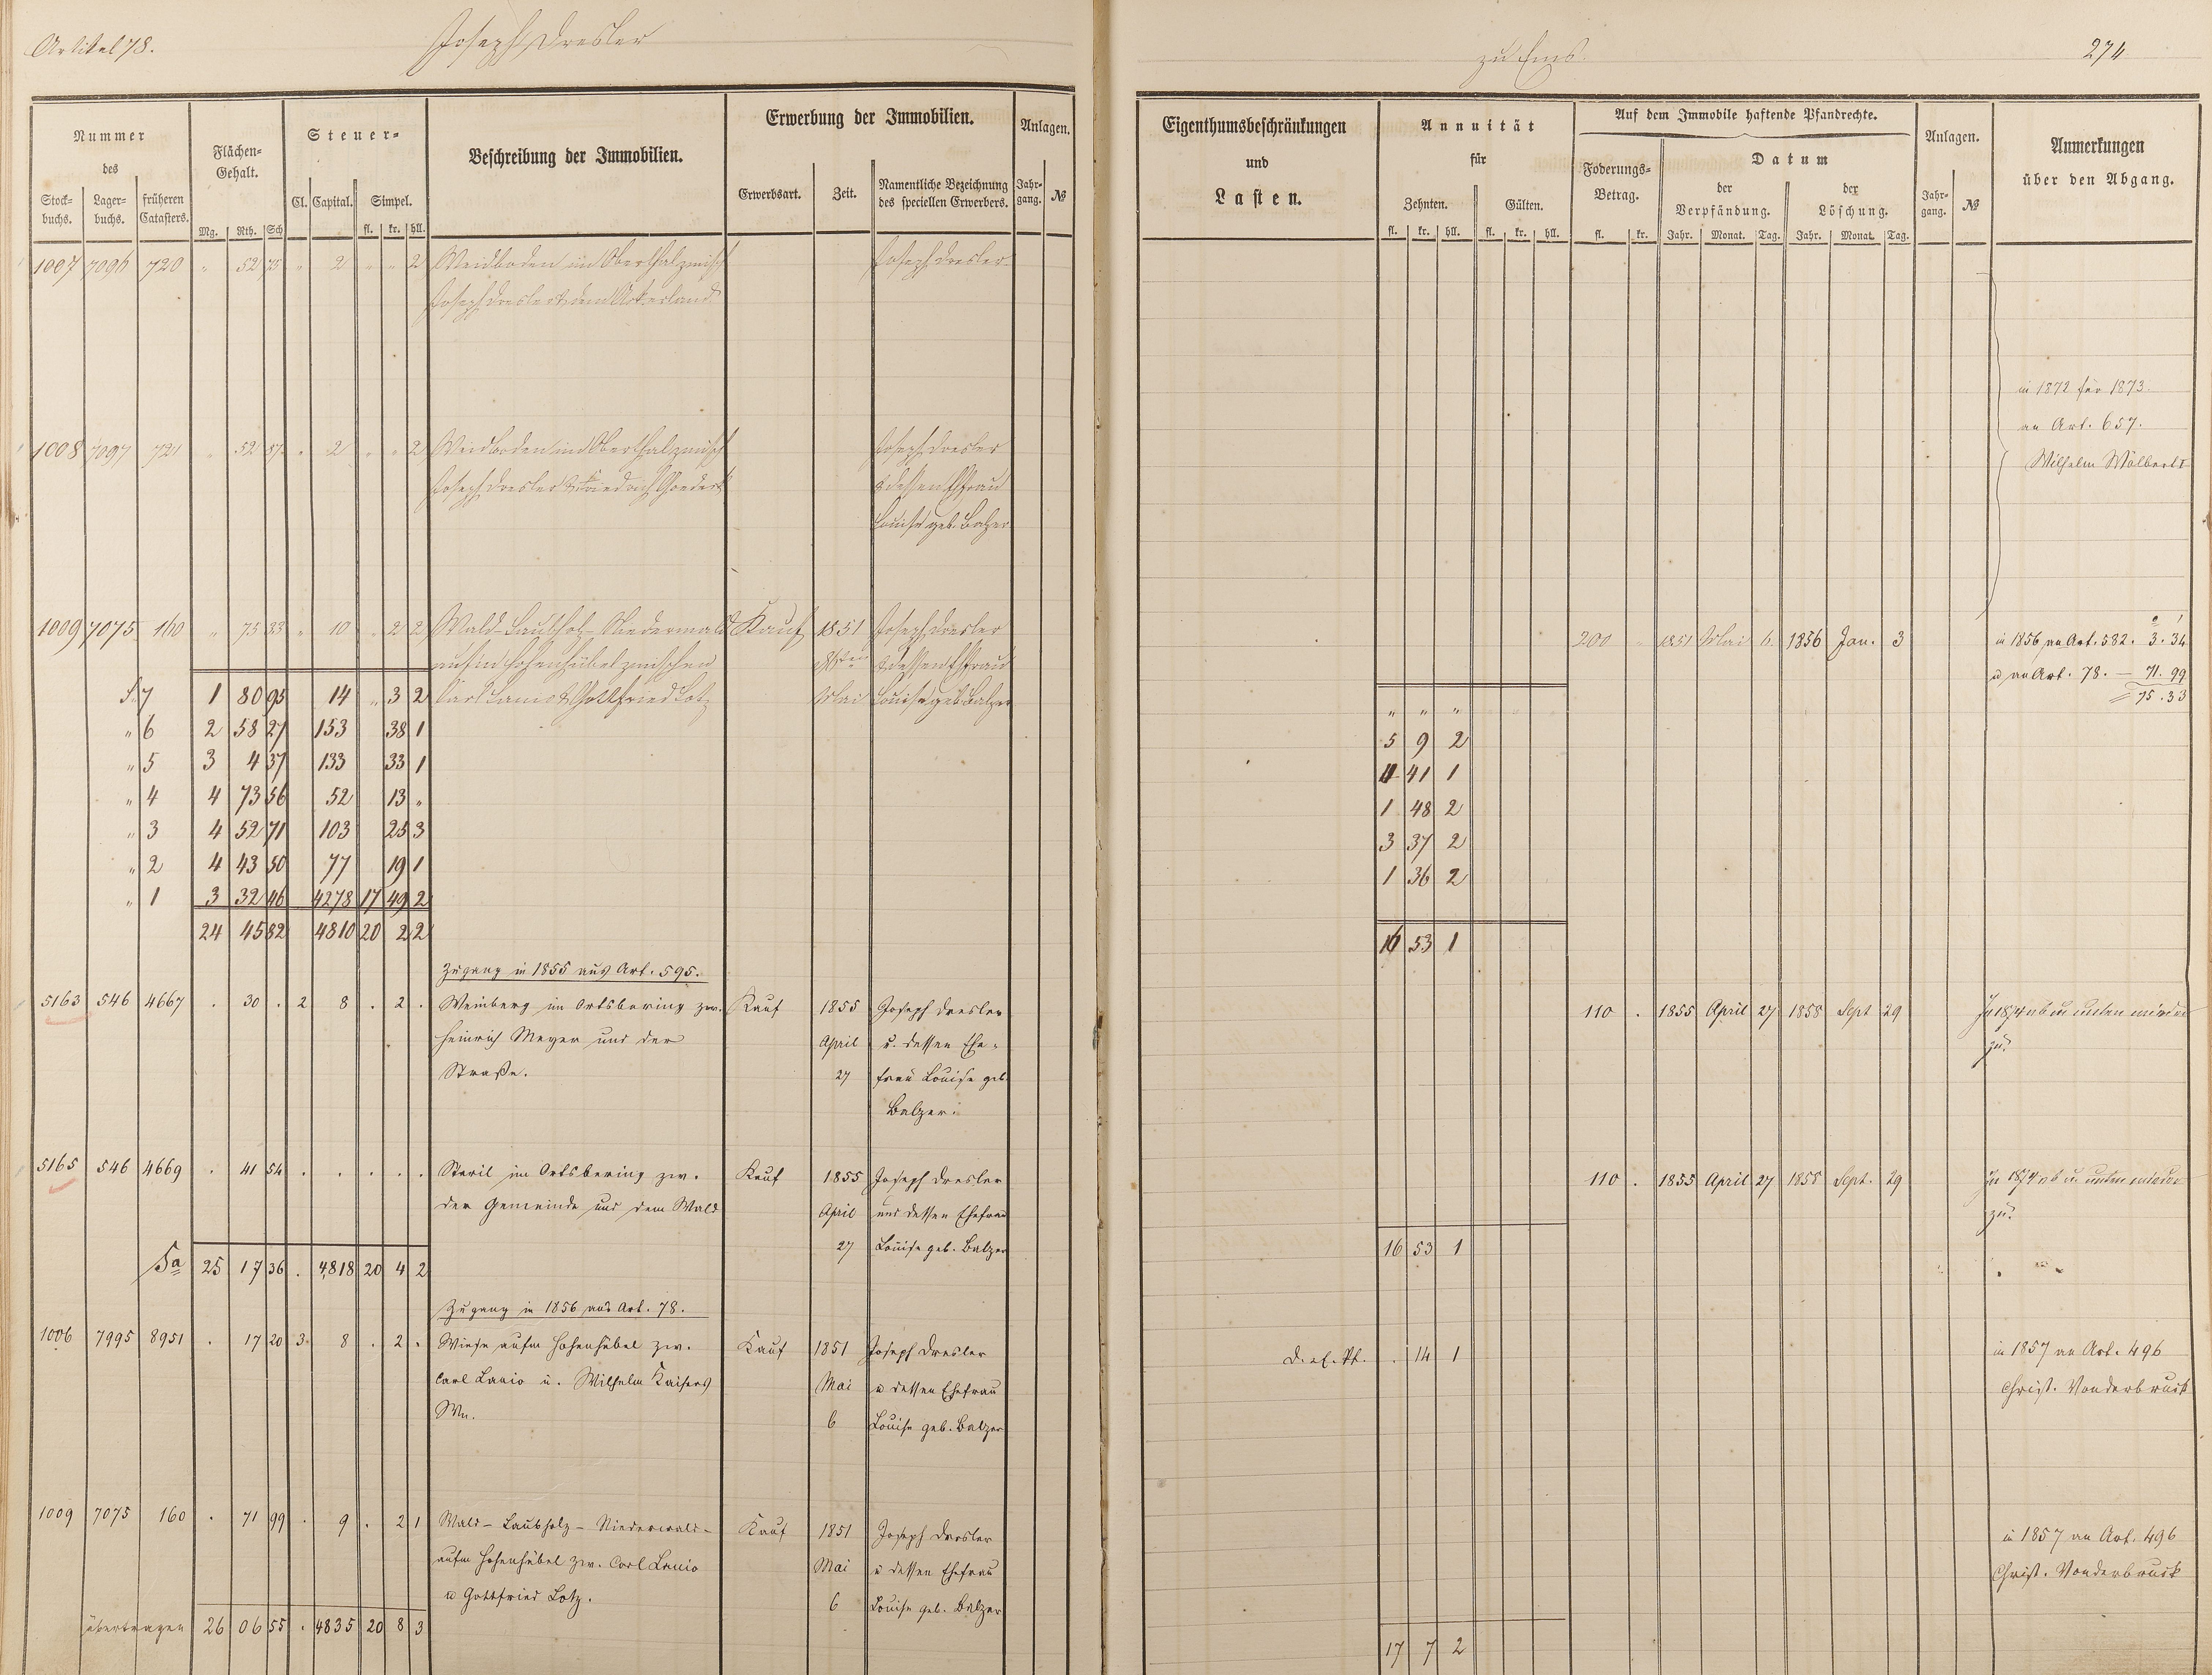 Artikel 78.
Joseph Dresler
zu Ems.
274
Nummer
des
Stock-
buchs.
Lager-
buchs.
früheren
Catasters.
Flächen-
Gehalt.
Mg. Rth. Sch
Steuer-
Cl. Capital. Simpel.
fl. kr. hll.
Beschreibung der Immobilien.
Erwerbung der Immobilien.
Erwerbsart. Zeit.
Namentliche Bezeichnung
des speciellen Erwerbers.
Anlagen.
Jahr-
gang. №
Eigenthumsbeschränkungen
und
Lasten.
Annuität
für
Zehnten. Gülten.
fl. kr. hll. fl. kr. hll.
Auf dem Immobile haftende Pfandrechte.
Foderungs-
Betrag.
fl. kr.
Datum
der
Verpfändung.
der
Löschung.
Jahr. Monat. Tag. Jahr. Monat. Tag.
Anlagen.
Jahr-
gang. №
Anmerkungen
über den Abgang.
1007 7096 720 " 52 25 " 2 " " 2 Weidboden im Oberthal zwisch Joseph Dresler
Joseph Dresler & dem Ackerland
in 1872 für 1873.
an Art. 657.
1008 7097 721 " 52 57 " 2 " " 2 Weidboden im Oberthal zwisch Joseph Dresler
Wilhelm Wolbert I
Joseph Dresler & Friedrich Goedert & dessen Ehfrau
Louise geb. Balzer
1009 7075 160 " 75 33 " 10 " 2 2 Wald-Laubholz-Niederwald Kauf 1851 Joseph Dresler 200 " 1851 Mai 6. 1856 Jan. 3 in 1856 an Art. 582. 3. 34
aufm Hohenhübel zwischen & dessen Ehfrau u an Art. 78. — 71. 99
= 75. 33
S. 7 1 80 95 14 " 3 2 Carl Lanio & Gottfried Lotz Mai Louise geb. Balzer " " "
" 6 2 58 27 153 38 1 5 9 2
" 5 3 4 37 133 33 1 4 41 1
" 4 4 73 56 52 13 " 1 48 2
" 3 4 52 71 103 25 3 3 37 2
" 2 4 43 50 77 19 1 1 36 2
" 1 3 32 46 4278 17 49 2
24 45 82 4810 20 2 2 16 53 1
Zugang in 1855 aus Art. 595.
5163 546 4667 . 30 . 2 8 . 2 . Weinberg im Ortsbering zw. Kauf 1855 Joseph Dresler 110 . 1855 April 27 1858 Sept 29 In 1874 ab u unten wieder
Heinrich Meyer und der April u. dessen Ehe- zu.
Straße. 27 frau Louise geb.
Balzer.
5165 546 4669 . 41 54 . . . . . Steril im Ortsbering zw. Kauf 1855 Joseph Dresler 110 . 1855 April 27 1858 Sept. 29 In 1874 ab u unten wieder
der Gemeinde und dem Wald April und dessen Ehefrau zu.
27 Louise geb. Balzer 16 53 1
Sa 25 17 36 . 4818 20 4 2
Zugang in 1856 aus Art. 78.
1006 7995 8951 . 17 20 3 8 . 2 . Wiese aufm Hohenhübel zw. Kauf 1851 Joseph Dresler . 14 1 in 1857 an Art. 496
Carl Lanio u. Wilhelm Kaisers Mai u dessen Ehefrau Christ. Vonderbruck
Ww. 6 Louise geb. Balzer
1009 7075 160 . 71 99 . 9 . 2 1 Wald-Laubholz-Niederwald- Kauf 1851 Joseph Dresler in 1857 an Art. 496
aufm Hohenhübel zw. Carl Lanio Mai u dessen Ehefrau Christ. Vonderbruck
u Gottfried Lotz. 6 Louise geb. Balzer
übertragen 26 06 55 . 4835 20 8 3 17 7 2